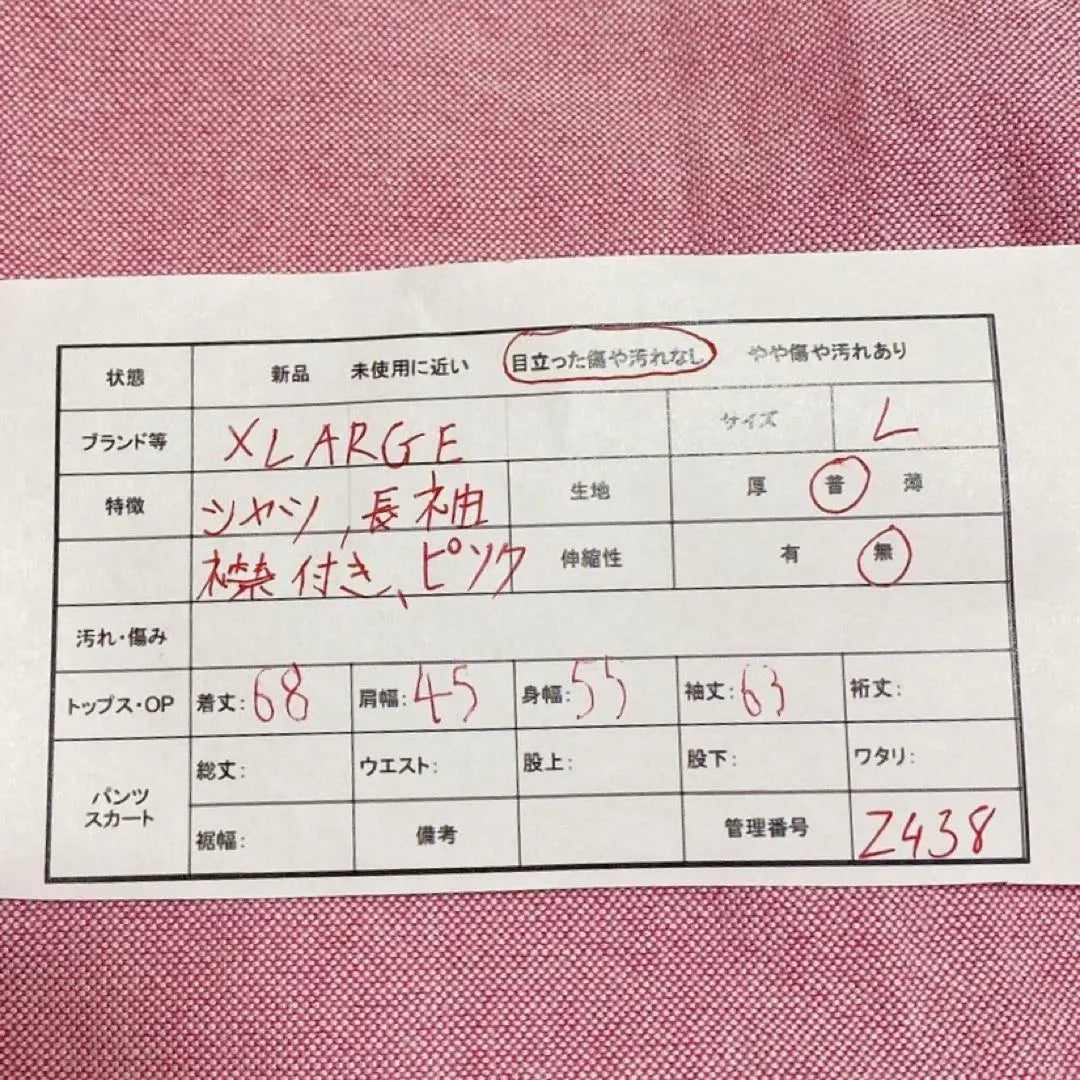 状態 新品 未使用に近い 目立った傷や汚れなし やや傷や汚れあり
ブランド等 XLARGE サイズ L
特徴 シャツ,長袖 生地 厚 普 薄
襟付き、ピンク 伸縮性 有 無
汚れ・傷み
トップス・OP 着丈:68 肩幅:45 身幅:55 袖丈:63 裄丈:
パンツ スカート 総丈: ウエスト: 股上: 股下: ワタリ:
裾幅: 備考 管理番号 Z438